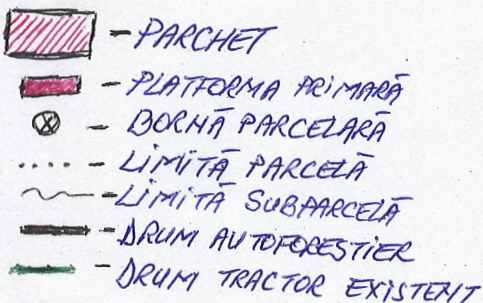 - PARCHET
- PLATFORMA PRIMARĂ
- BORNĂ PARCELARĂ
- LIMITĂ PARCELĂ
- LIMITĂ SUBPARCELĂ
- DRUM AUTOFORESTIER
- DRUM TRACTOR EXISTENT